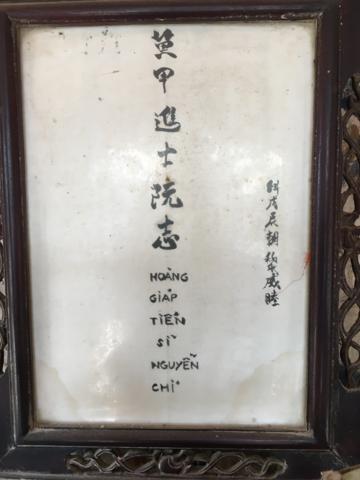 黃甲進士阮志
HOÀNG
GIÁP
TIẾN
SĨ
NGUYỄN
CHÍ
科戊辰朝威睦